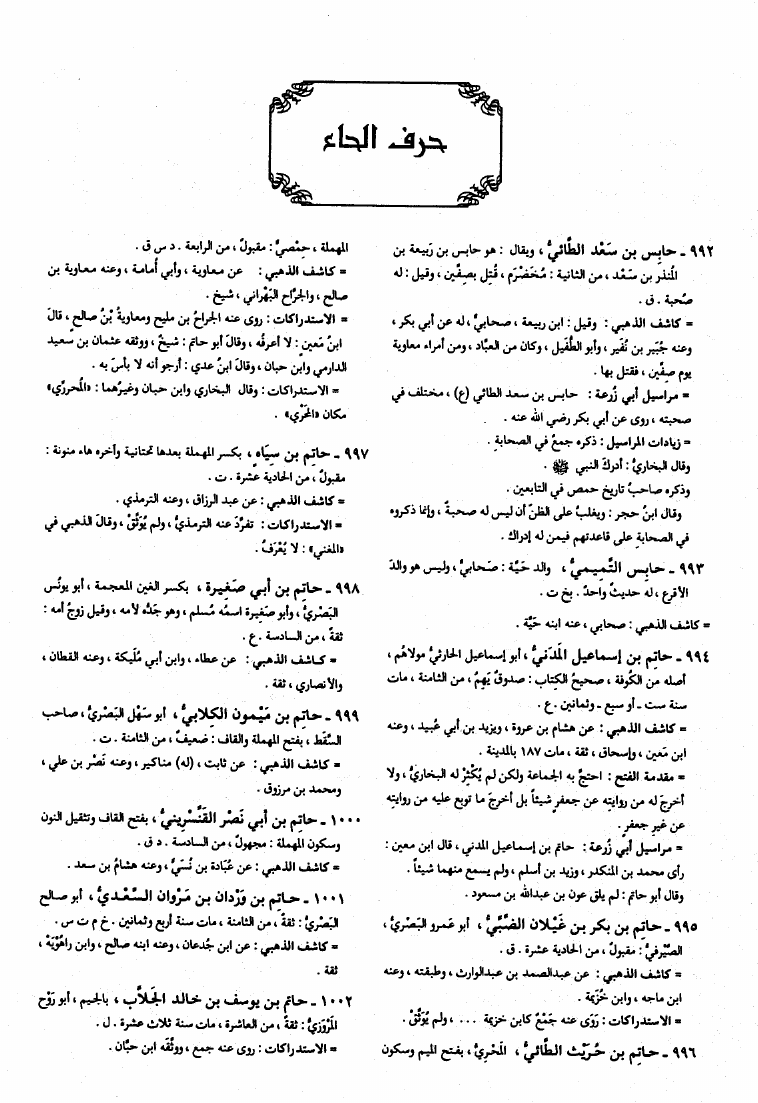 حرف الحاء
٩٩٢ - حابِس بن سَعْد الطَّائيُّ ، ويقال : هو حابس بن رَبيعة بن
المُنذر بن سَعْد ، من الثانية : مُخَضْرَم ، قُتِل بصِفِّين ، وقيل : له
صُحبة . ق .
= كاشف الذهبي : وقيل : ابن ربيعة ، صحابيٌّ ، له عن أبي بكر ،
وعنه جُبَير بن نُفَير ، وأبو الطُّفَيل ، وكان من العبَّاد ، ومن أمراء معاوية
يوم صِفِّين ، فقتل بها .
= مراسيل أبي زُرعة : حابس بن سعد الطائي (ع) ، مختلف في
صحبته ، روى عن أبي بكر رضي الله عنه .
= زيادات المراسيل : ذكره جمعٌ في الصحابة .
وقال البخاريُّ : أدركَ النبي ﷺ .
وذكره صاحبُ تاريخ حمص في التابعين .
وقال ابنُ حجر : ويغلبُ على الظنِّ أن ليس له صحبةٌ ، وإنما ذكروه
في الصحابةِ على قاعدتهم فيمن له إدراك .
٩٩٣ - حابس التَّميميُّ ، والد حَيَّة : صَحابيٌّ ، وليس هو والدَ
الأقرع ، له حديثٌ واحدٌ . بخ ت .
= كاشف الذهبي : صحابي ، عنه ابنه حَيَّة .
٩٩٤ - حاتم بن إسماعيل المَدَنيُّ ، أبو إسماعيل الحارثيُّ مولاهُم ،
أصله من الكُوفة ، صحيحُ الكِتاب : صدوقٌ يَهِمُ ، من الثامنة ، مات
سنة ست - أو سبع - وثمانين . ع .
= كاشف الذهبي : عن هشام بن عروة ، ويزيد بن أبي عُبيد ، وعنه
ابن مَعين ، وإسحاق ، ثقة ، مات ١٨٧ بالمدينة .
= مقدمة الفتح : احتجَّ به الجماعة ولكن لم يُكْثِرْ له البخاريُّ ، ولا
أخرجَ له من روايته عن جعفرٍ شيئاً بل أخرجَ ما توبع عليه من روايتِه
عن غيرِ جعفر .
= مراسيل أبي زُرعة : حاتم بن إسماعيل المدني ، قال ابن معين :
رأى محمد بن المنكدر ، وزيد بن أسلم ، ولم يسمع منهما شيئاً .
وقال أبو حاتم : لم يلق عون بن عبدالله بن مسعود .
٩٩٥ - حاتم بن بكر بن غَيلان الضَّبِّيُّ ، أبو عمرو البَصْريُّ ،
الصَّيْرفيُّ : مقبولٌ ، من الحادية عشرة . ق .
= كاشف الذهبي : عن عبدالصمد بن عبدالوارث ، وطبقته ، وعنه
ابن ماجه ، وابن خُزَيمة .
= الاستدراكات : رَوَى عنه جَمْعٌ كابن خزيمة ... ، ولم يُوَثَّقْ .
٩٩٦ - حاتم بن حُرَيْث الطَّائيُّ ، المَحْرِيُّ ، بفتح الميم وسكون
المهملة ، حِمْصيٌّ : مقبولٌ ، من الرابعة . د س ق .
= كاشف الذهبي : عن معاوية ، وأبي أُمامة ، وعنه معاوية بن
صالح ، والجَرَّاح البَهْراني ، شيخ .
= الاستدراكات : روى عنه الجراحُ بن مليح ومعاويةُ بْنُ صالح ، قالَ
ابنُ مَعين : لا أعرفُه ، وقالَ أبو حاتم : شيخٌ ، ووثقه عثمان بن سعيد
الدارمي وابن حبان ، وقالَ ابنُ عدي : أرجو أنه لا بأسَ به .
= الاستدراكات : وقال البخاري وابن حبان وغيرُهما : «المُحرزي»
مكان «المَحْري» .
٩٩٧ - حاتم بن سِيَاه ، بكسر المهملة بعدها تحتانية وآخره هاء منونة :
مقبولٌ ، من الحادية عشرة . ت .
= كاشف الذهبي : عن عبد الرزاق ، وعنه الترمذي .
= الاستدراكات : تفرَّدَ عنه الترمذيُّ ، ولم يُوَثَّقْ ، وقالَ الذهبي في
«المغني» : لا يُعْرَفُ .
٩٩٨ - حاتم بن أبي صَغِيرة ، بكسر الغين المعجمة ، أبو يونُس
البَصْريُّ ، وأبو صَغيرة اسمُه مُسلم ، وهو جَدُّه لأمه ، وقيل زوجُ أمه :
ثقةٌ ، من السادسة . ع .
= كاشف الذهبي : عن عطاء ، وابن أبي مُلَيكة ، وعنه القطان ،
والأنصاري ، ثقة .
٩٩٩ - حاتم بن مَيْمون الكلابيُّ ، أبو سَهْل البَصْريُّ ، صاحب
السَّقَط ، بفتح المهملة والقاف : ضعيفٌ ، من الثامنة . ت .
= كاشف الذهبي : عن ثابت ، (له) مناكير ، وعنه نَصْر بن علي ،
ومحمد بن مرزوق .
١٠٠٠ - حاتم بن أبي نَصْر القَنَّسْرينيُّ ، بفتح القاف وتثقيل النون
وسكون المهملة : مجهولٌ ، من السادسة . د ق .
= كاشف الذهبي : عن عُبَادة بن نُسَيّ ، وعنه هشامُ بن سعد .
١٠٠١ - حاتم بن وَرْدان بن مَرْوان السَّعْديُّ ، أبو صالح
البَصْريُّ : ثقةٌ ، من الثامنة ، مات سنة أربع وثمانين . خ م ت س .
= كاشف الذهبي : عن ابن جُدعان ، وعنه ابنه صالح ، وابن راهُوْيَهْ ،
ثقة .
١٠٠٢ - حاتم بن يوسف بن خالد الجَلَّاب ، بالجيم ، أبو رَوْح
المَرْوَزيُّ : ثقةٌ ، من العاشرة ، مات سنة ثلاث عشرة . ل .
= الاستدراكات : روى عنه جمع ، ووثَّقه ابن حبَّان .